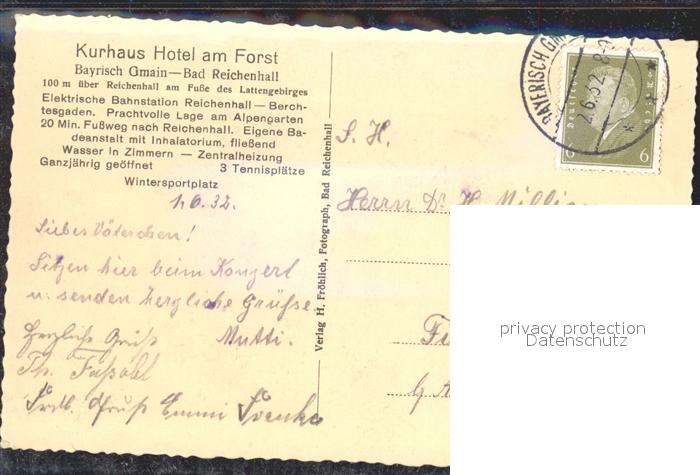 Kurhaus Hotel am Forst
Bayrisch Gmain—Bad Reichenhall
100 m über Reichenhall am Fuße des Lattengebirges
Elektrische Bahnstation Reichenhall — Berch-
tesgaden. Prachtvolle Lage am Alpengarten
20 Min. Fußweg nach Reichenhall. Eigene Ba-
deanstalt mit Inhalatorium, fließend
Wasser in Zimmern — Zentralheizung
Ganzjährig geöffnet 3 Tennisplätze
Wintersportplatz
1.6.32.
Liebes Väterchen!
Sitzen hier beim Konzert
u. senden herzliche Grüsse
Mutti.
Herzliche Grüße
Th.
Frdl. Gruß Emmi
Verlag H. Fröhlich, Fotograph, Bad Reichenhall
BAYERISCH
2.6.32. 8-
Deutsches
6 6
S. H.
Herrn Dr. H.
privacy protection
Datenschutz